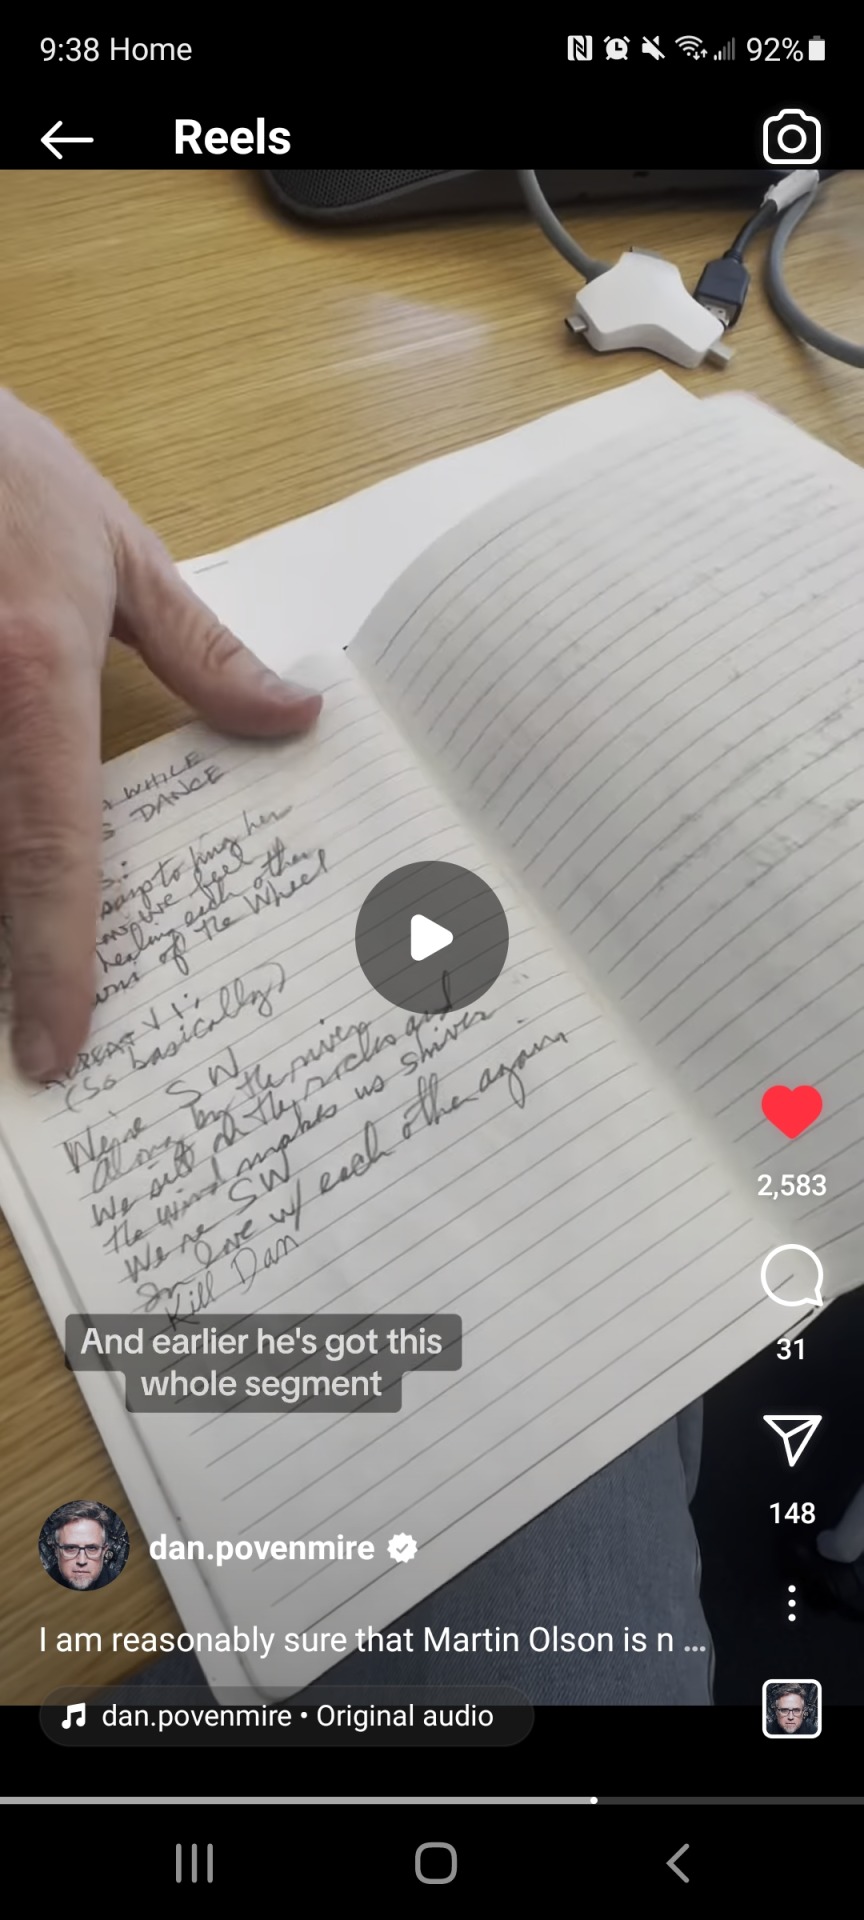 9:38 Home
92%
Reels
WHILE
DANCE
her
we feel
healing each other
of the Wheel
(So basically)
We're SW
Along by the river
We sit on the rocks and
the wind makes us shiver
We're SW
In love w/ each other again
Kill Dan
And earlier he's got this
whole segment
2,583
31
148
dan.povenmire
I am reasonably sure that Martin Olson is n ...
dan.povenmire • Original audio